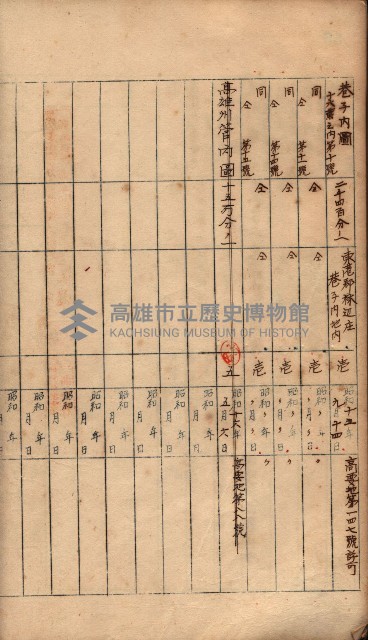 巷子內圖
十六番之內第十號
二千四百分ノ一
東港郡林辺庄
巷子內地內
壱
昭和十五年
高要地第一四七號許可
同
仝 第十一號
仝
仝
壱
昭和〃年〃月〃日
〃
同
仝 第十四號
仝
仝
壱
昭和〃年〃月〃日
〃
同
仝 第十五號
仝
仝
壱
昭和〃年〃月〃日
〃
高雄州管內圖
十五万分ノ一
五
昭和十六年五月六日
高要地第八八號
昭和 年 月 日
昭和 年 月 日
昭和 年 月 日
昭和 年 月 日
昭和 年 月 日
昭和 年 月 日
高雄市立歷史博物館
KAOHSIUNG MUSEUM OF HISTORY